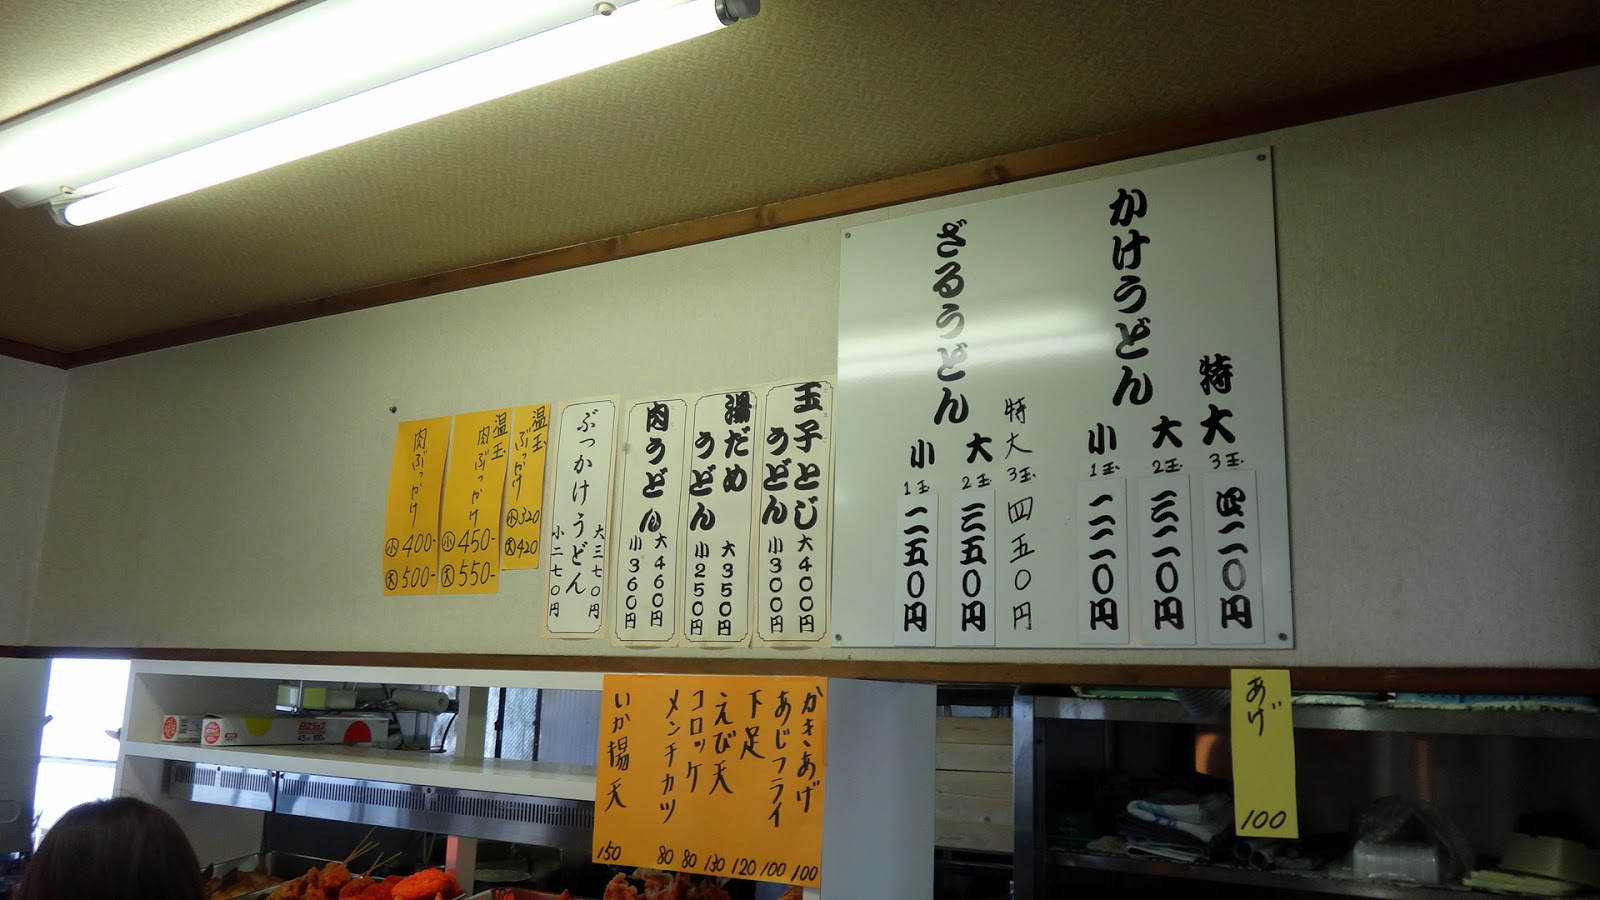 かけうどん
特大 3玉 四二〇円
大 2玉 三二〇円
小 1玉 二二〇円
ざるうどん
特大 3玉 四五〇円
大 2玉 三五〇円
小 1玉 二五〇円
玉子とじ
うどん
大400円
小300円
湯だめ
うどん
大350円
小250円
肉うどん
大460円
小360円
ぶっかけうどん
大三七〇円
小二七〇円
温玉
ぶっかけ
小320
大420
温玉
肉ぶっかけ
小450-
大550-
肉ぶっかけ
小400-
大500-
あげ 100
かきあげ 100
あじフライ 100
下足 120
えび天 130
コロッケ 80
メンチカツ 80
いか揚天 150